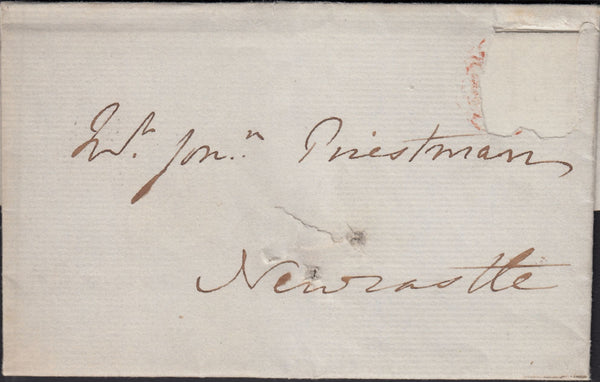 Jonⁿ. Priestman
Newcastle